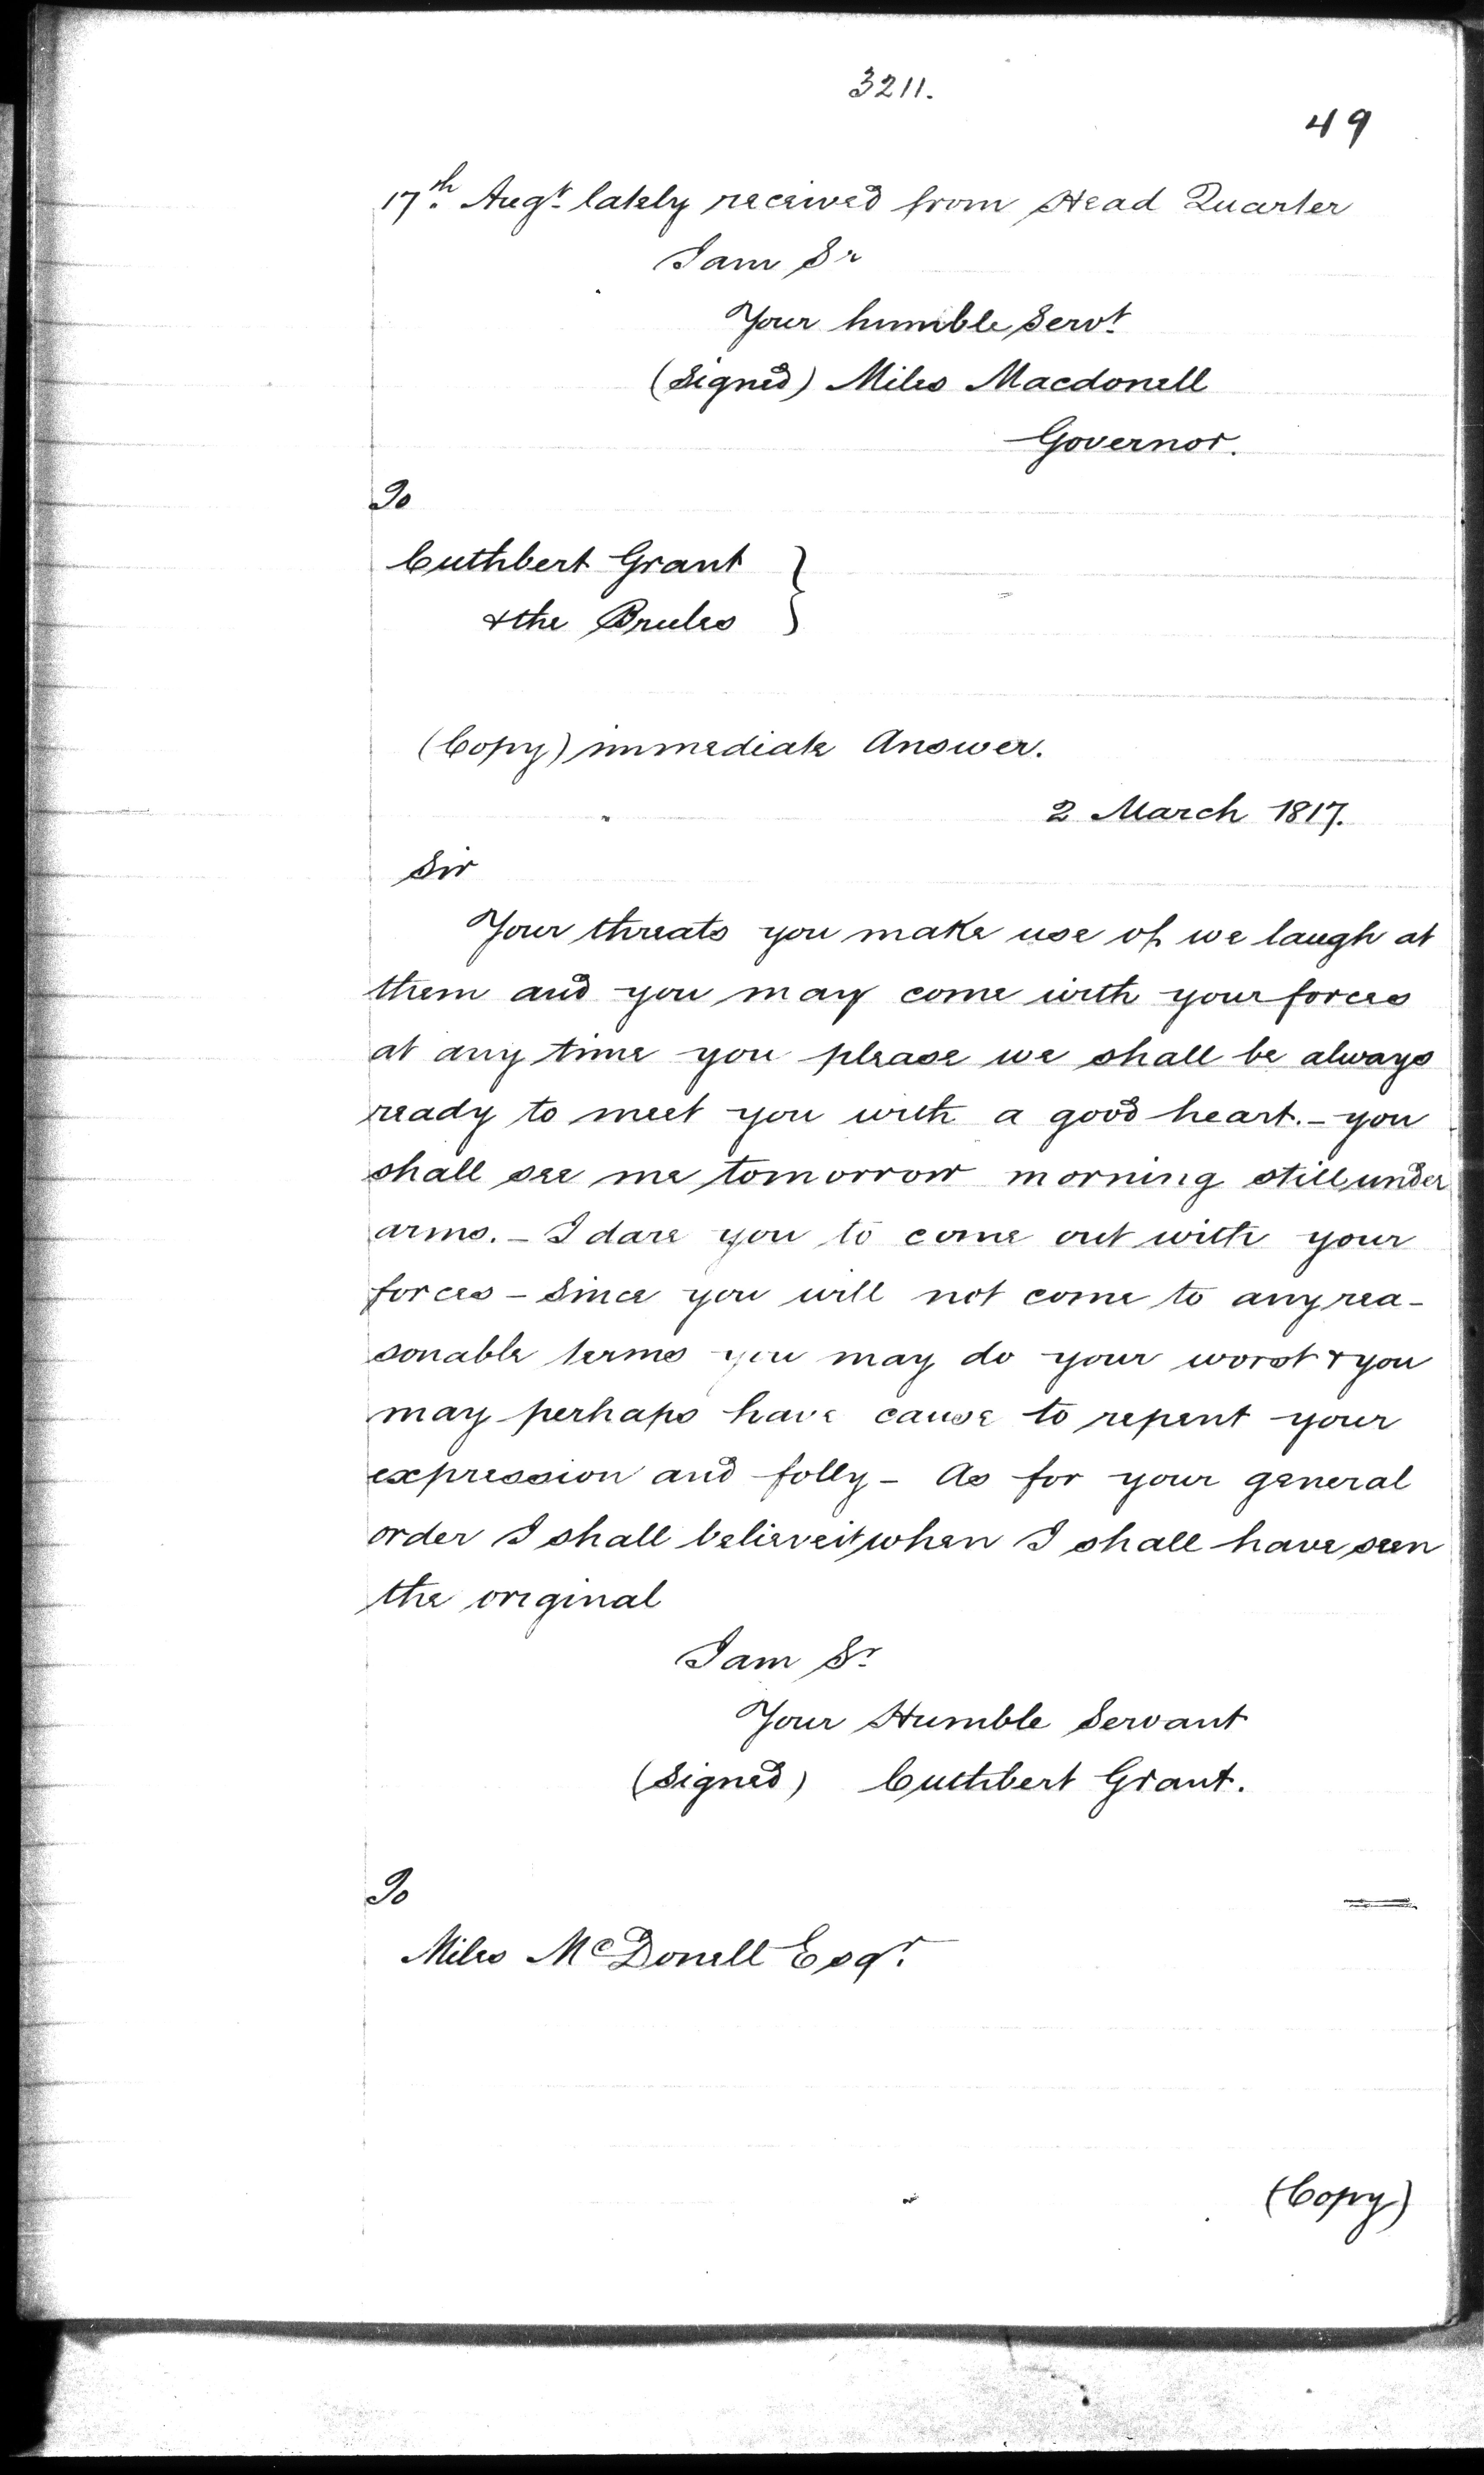 3211.
49
17th Augt lately received from Head Quarter
I am Sr
Your humble Servt
(Signed) Miles Macdonell
Governor.
To
Cuthbert Grant
& the Brules
(Copy) immediate Answer.
2 March 1817.
Sir
Your threats you make use of we laugh at
them and you may come with your forces
at any time you please we shall be always
ready to meet you with a good heart. - you
shall see me tomorrow morning still under
arms. - I dare you to come out with your
forces - Since you will not come to any rea-
sonable terms you may do your worst & you
may perhaps have cause to repent your
expression and folly - As for your general
order I shall believe it when I shall have seen
the original
I am Sr
Your Humble Servant
(Signed) Cuthbert Grant.
To
Miles McDonell Esqr.
(Copy)